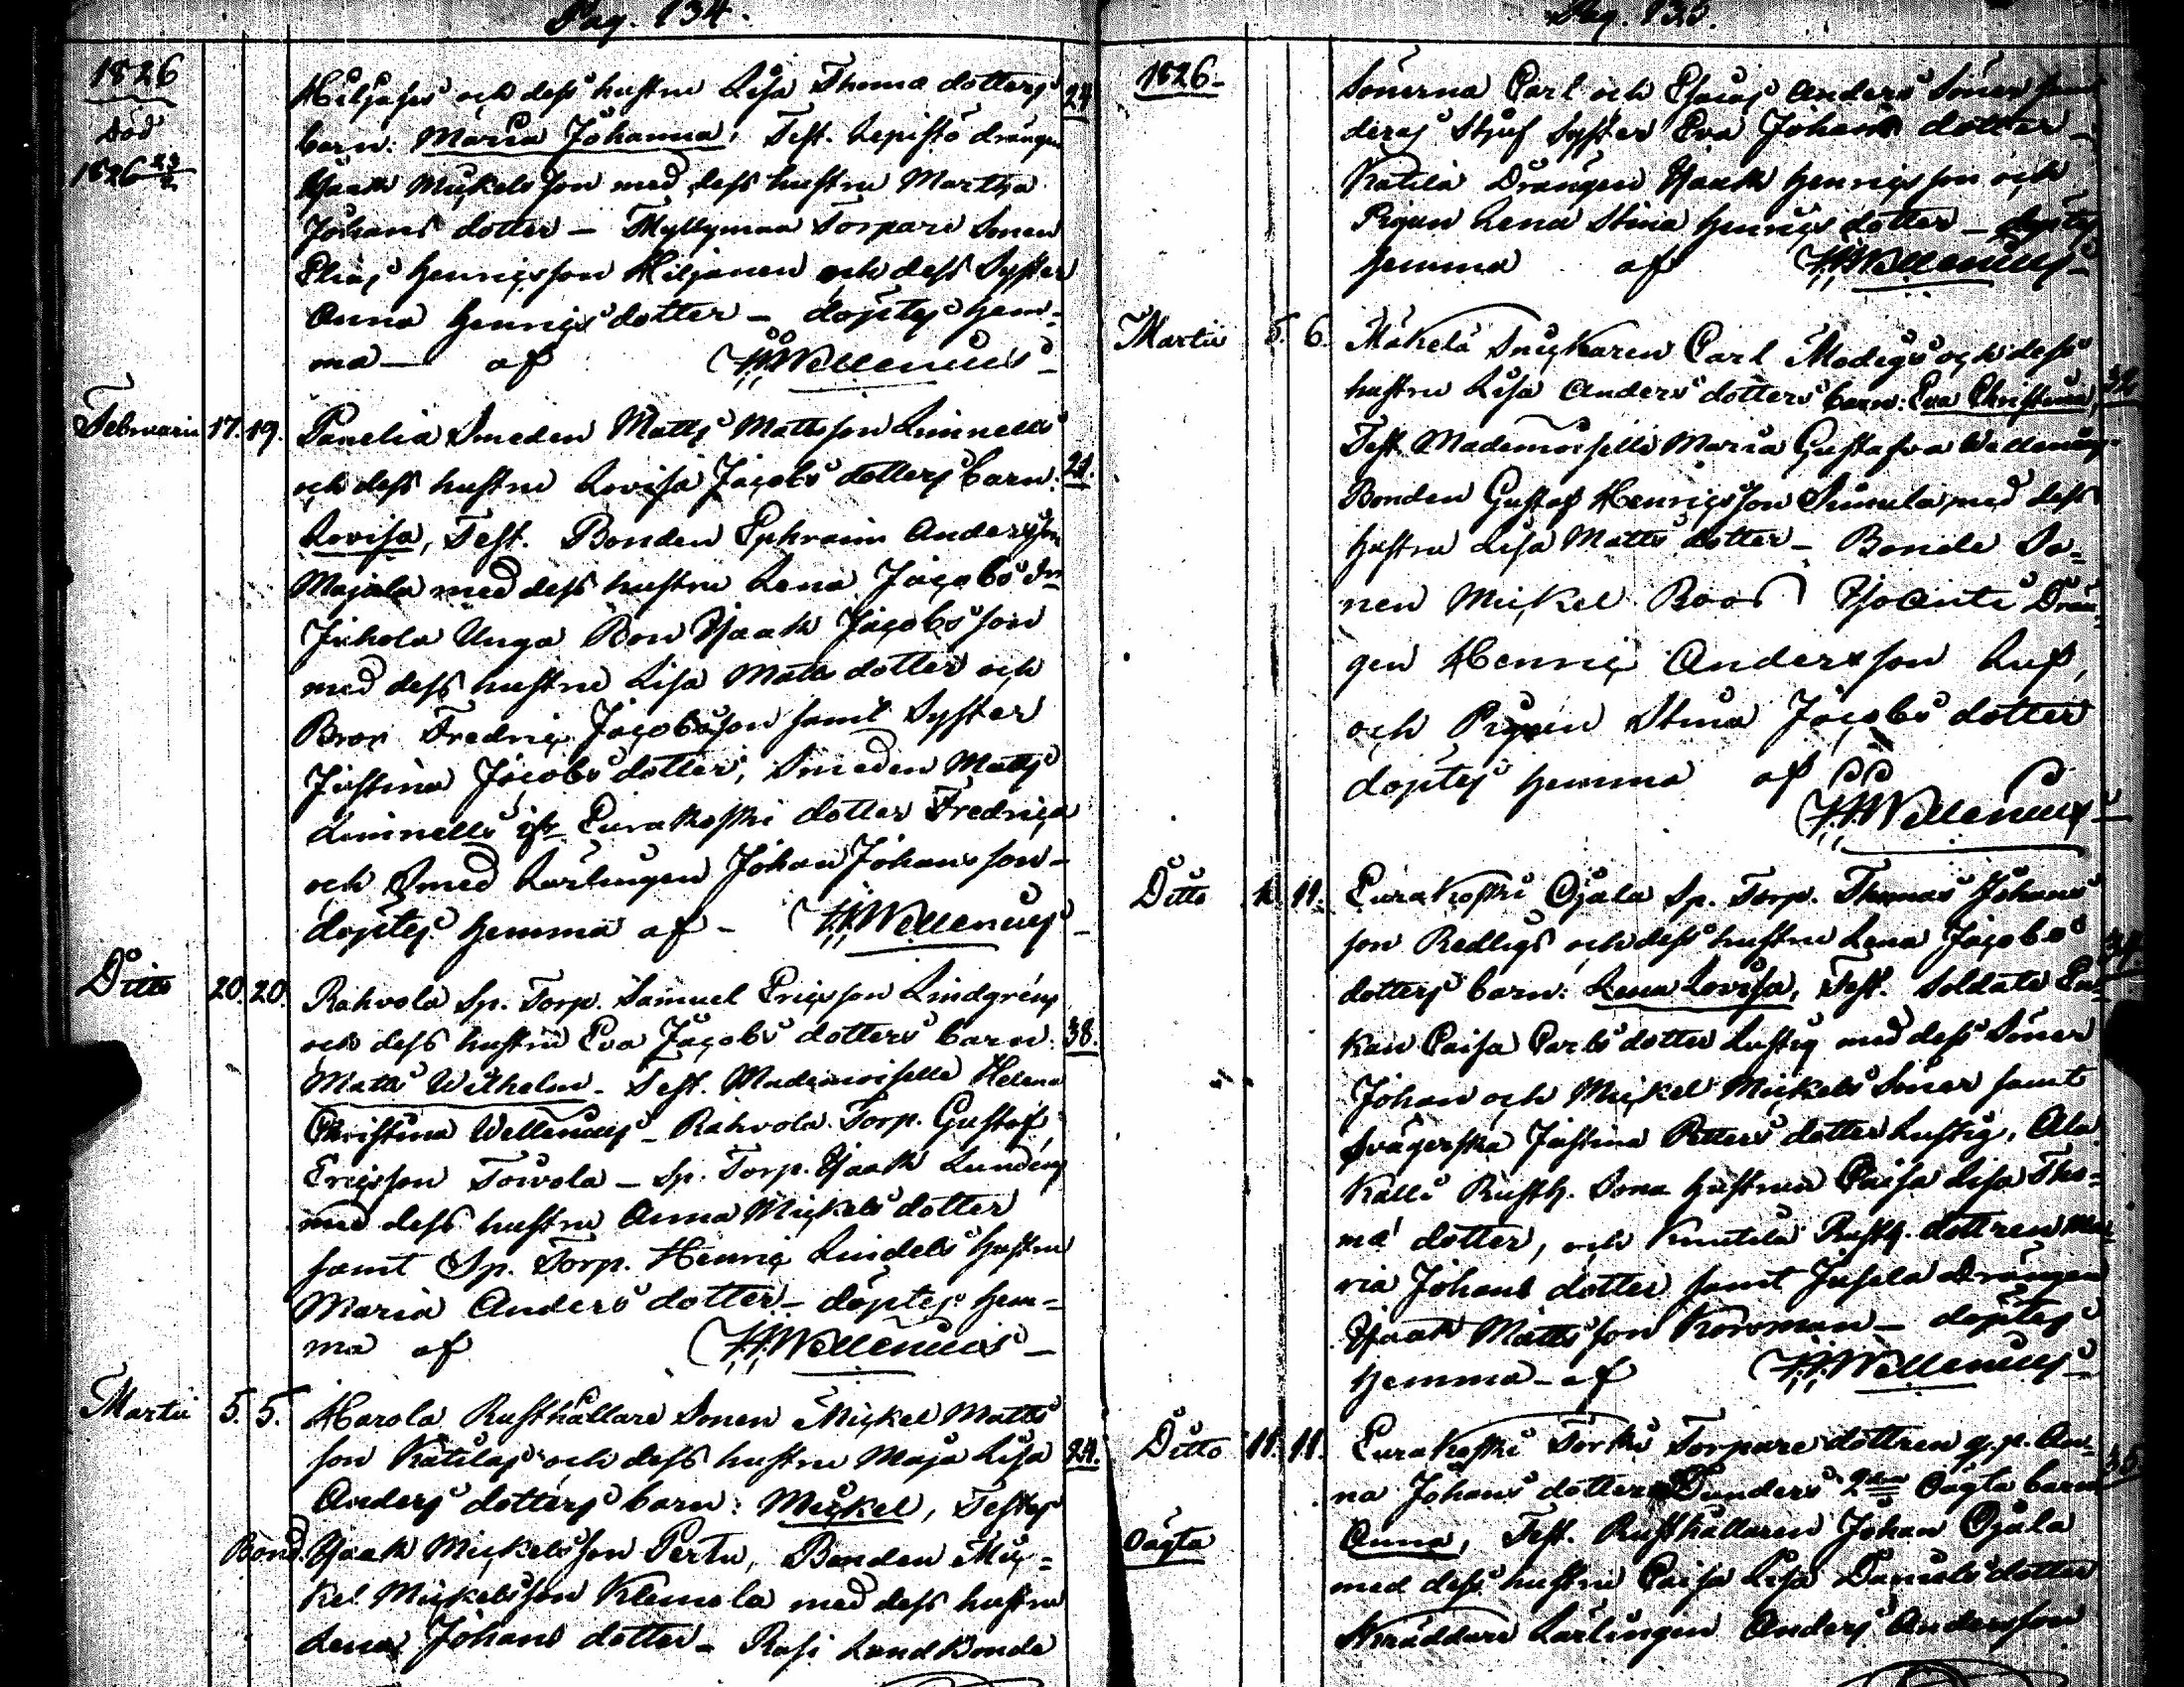 Pag. 134.
1826
död
1826 23/2
Hiljases och dess hustru Lisa Thomä dotters 24
barn: Maria Johanna, Test. Lepistö drängen
Isaak Mickelsson med dess hustru Martha
Johans dotter – Myllymaa Torpare Sonen
Elias Henricsson Hiljanen och dess Syster
Anna Henrics dotter – döptes hem-
ma – af HHWellenius
Februarii 17. 19. Panelia Smeden Matts Mattsson Linnells
och dess hustru Lovisa Jacobs dotters barn: 21.
Lovisa, Test. Bonden Ephraim Andersson
Majala med dess hustru Lena Jacobs dr
Juhola Unga Bon Isaak Jacobsson
med dess hustru Lisa Matts dotter och
Bror Fredric Jacobsson samt Syster
Justina Jacobs dotter, Smeden Matts
Linnells ifr Eurakoski dotter Fredrica
och Smed Lärlingen Johan Johansson –
döptes hemma af – HHWellenius
Ditto 20. 20. Rahvola Sp. Torp. Samuel Ericsson Lindgréns
och dess hustru Eva Jacobs dotters barn: 38.
Matts Wilhelm – Test. Mademoiselle Helena
Christina Wellenius – Rahvola Torp. Gustaf
Ericsson Towola – Sp. Torp. Isaak Lundéns
med dess hustru Anna Mickels dotter
samt Sp. Torp. Henric Lindels hustru
Maria Anders dotter – döptes hem-
ma af HHWellenius –
Martii 5. 5. Harola Rusthållare Sonen Mickel Matts
son Katilas och dess hustru Maja Lisa 24.
Anders dotters barn: Mickel, Testes
Bond. Isaak Mickelsson Pertu, Bonden Mic-
kel Mickelsson Klemola med dess hustru
Lena Johans dotter – Rasi Landbonde
Pag. 135.
1826 –
Sönerna Carl och Esaias Anders Söner samt
deras Stjuf Syster Eva Johans dotter –
Katila Drängen Isaak Henricsson och
Pigan Lena Stina Henrics dotter – döptes
hemma af HHWellenius –
Martii 5. 6. Mäkelä Snickaren Carl Modigs och dess
hustru Lisa Anders dotters barn: Eva Christina, 32
Test. Mademoiselle Maria Gustafva Wellenius.
Bonden Gustaf Henricsson Sumula med dess
hustru Lisa Matts dotter – Bonde So-
nen Mickel Roos Drän-
gen Henric Andersson Luf,
och Pigan Stina Jacobs dotter
döptes hemma af
HHWellenius –
Ditto 11. Eurakoski Ojala Sp. Torp. Thomas Johans
son Redligs och dess hustru Lena Jacobs
dotters barn: Lena Lovisa, Test. Soldate En-
kan Caisa Carls dotter Lustig med dess Söner
Johan och Mickel Mickels Söner samt
Svägerska Justina Petters dotter Lustig, Ala
Kalli Rusth. Sona hustrun Caisa Lisa Tho-
mä dotter, och Knutila Rusth. dottren Ma-
ria Johans dotter samt Jusela Drängen
Isaak Mattsson Korsman – döptes
hemma – af HHWellenius –
Ditto 11. 11. Eurakoski Torkki Torpare dottren q.p. An-
na Johans dotter Dunders 2dra Oägta barn
Oägta Anna, Test. Rusthållaren Johan Ojala
med dess hustru Caisa Lisa Daniels dotter
Skräddare Lärlingen Anders Andersson